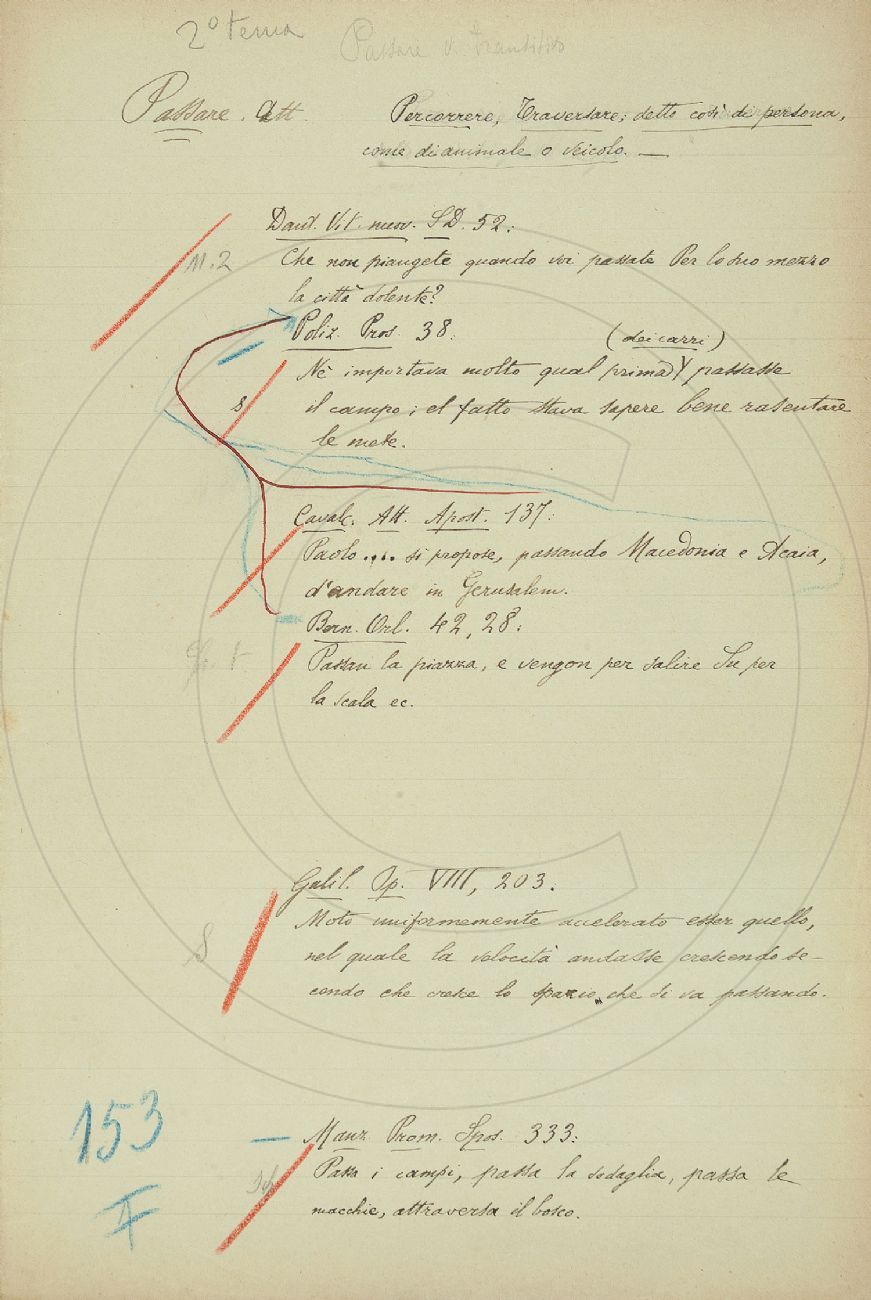 2º tema
Passare v. transitivo
Passare. Att.
Percorrere, Traversare; detto così di persona,
come di animale o veicolo. —
Dant. Vit. nuov. SD. 52:
M. 2
Che non piangete quando voi passate Per lo suo mezzo
la città dolente?
Poliz. Pros. 38:
(dei carri)
Nè importava molto qual prima passasse
S
il campo; el fatto stava sapere bene rasentare
le mete.
Cavalc. Att. Apost. 137:
Paolo .... si propose, passando Macedonia e Acaia,
d'andare in Gerusalem.
Bern. Orl. 42, 28:
Passan la piazza, e vengon per salire Su per
la scala ec.
Galil. Op. VIII, 203.
Moto uniformemente accelerato esser quello,
S
nel quale la velocità andasse crescendo se-
condo che cresce lo spazio che si va passando.
153
Manz. Prom. Spos. 333:
Passa i campi, passa la sodaglia, passa le
macchie, attraversa il bosco.